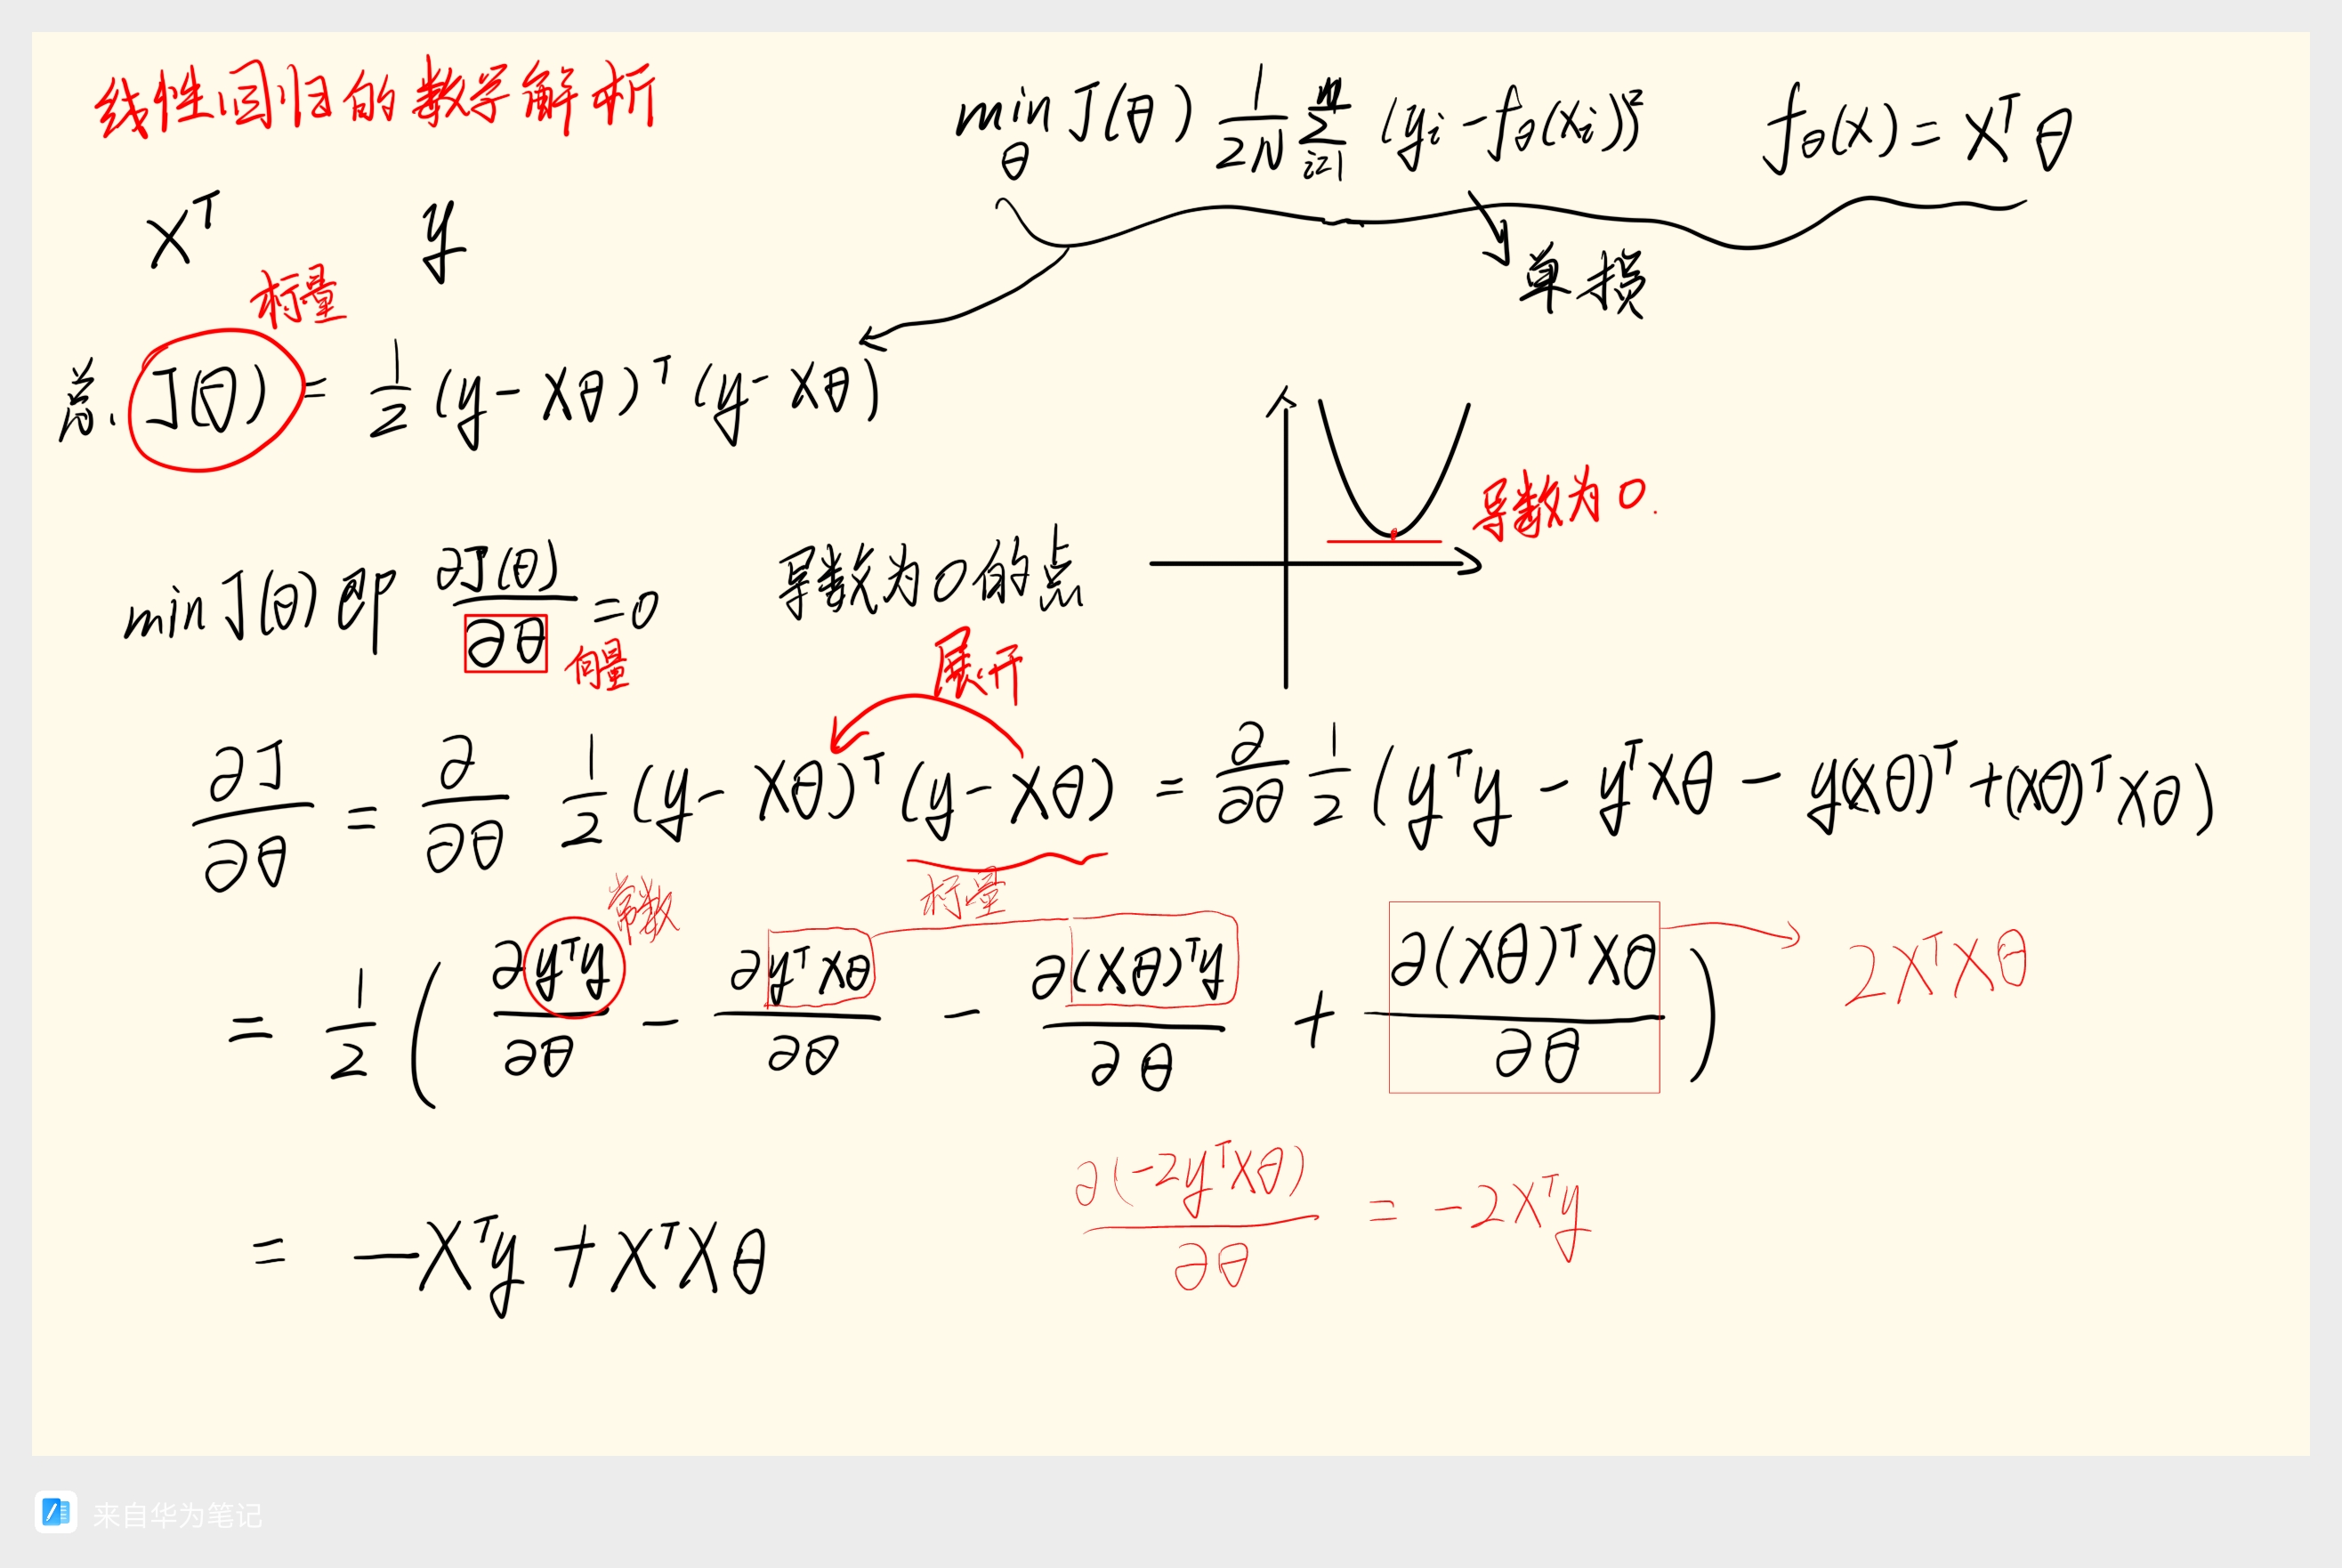 线性回归的数学解析
min J(θ) 1/2N Σ (yi - fθ(xi))²   fθ(x) = X^T θ
θ   i=1
X^T   y
单损
标量
总. J(θ) = 1/2 (y - Xθ)^T (y - Xθ)
导数为0.
min J(θ) 即 ∂J(θ)/∂θ = 0   导数为0的点
向量
展开
∂J/∂θ = ∂/∂θ 1/2 (y - Xθ)^T (y - Xθ) = ∂/∂θ 1/2 (y^T y - y^T Xθ - y(Xθ)^T + (Xθ)^T Xθ)
常数   标量
= 1/2 ( ∂y^T y/∂θ - ∂y^T Xθ/∂θ - ∂(Xθ)^T y/∂θ + ∂(Xθ)^T Xθ/∂θ )   2X^T Xθ
∂(-2y^T Xθ)/∂θ = -2X^T y
= -X^T y + X^T Xθ
来自华为笔记